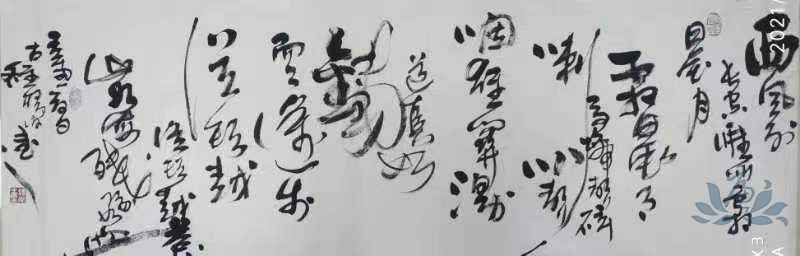 西风烈
长空雁叫霜
晨月
霜晨月
马蹄声碎
喇叭声
咽雄关漫
道真如
铁
而今迈步
从头越
从头越苍
山如海残阳如血
辛丑
2021/
K3
A